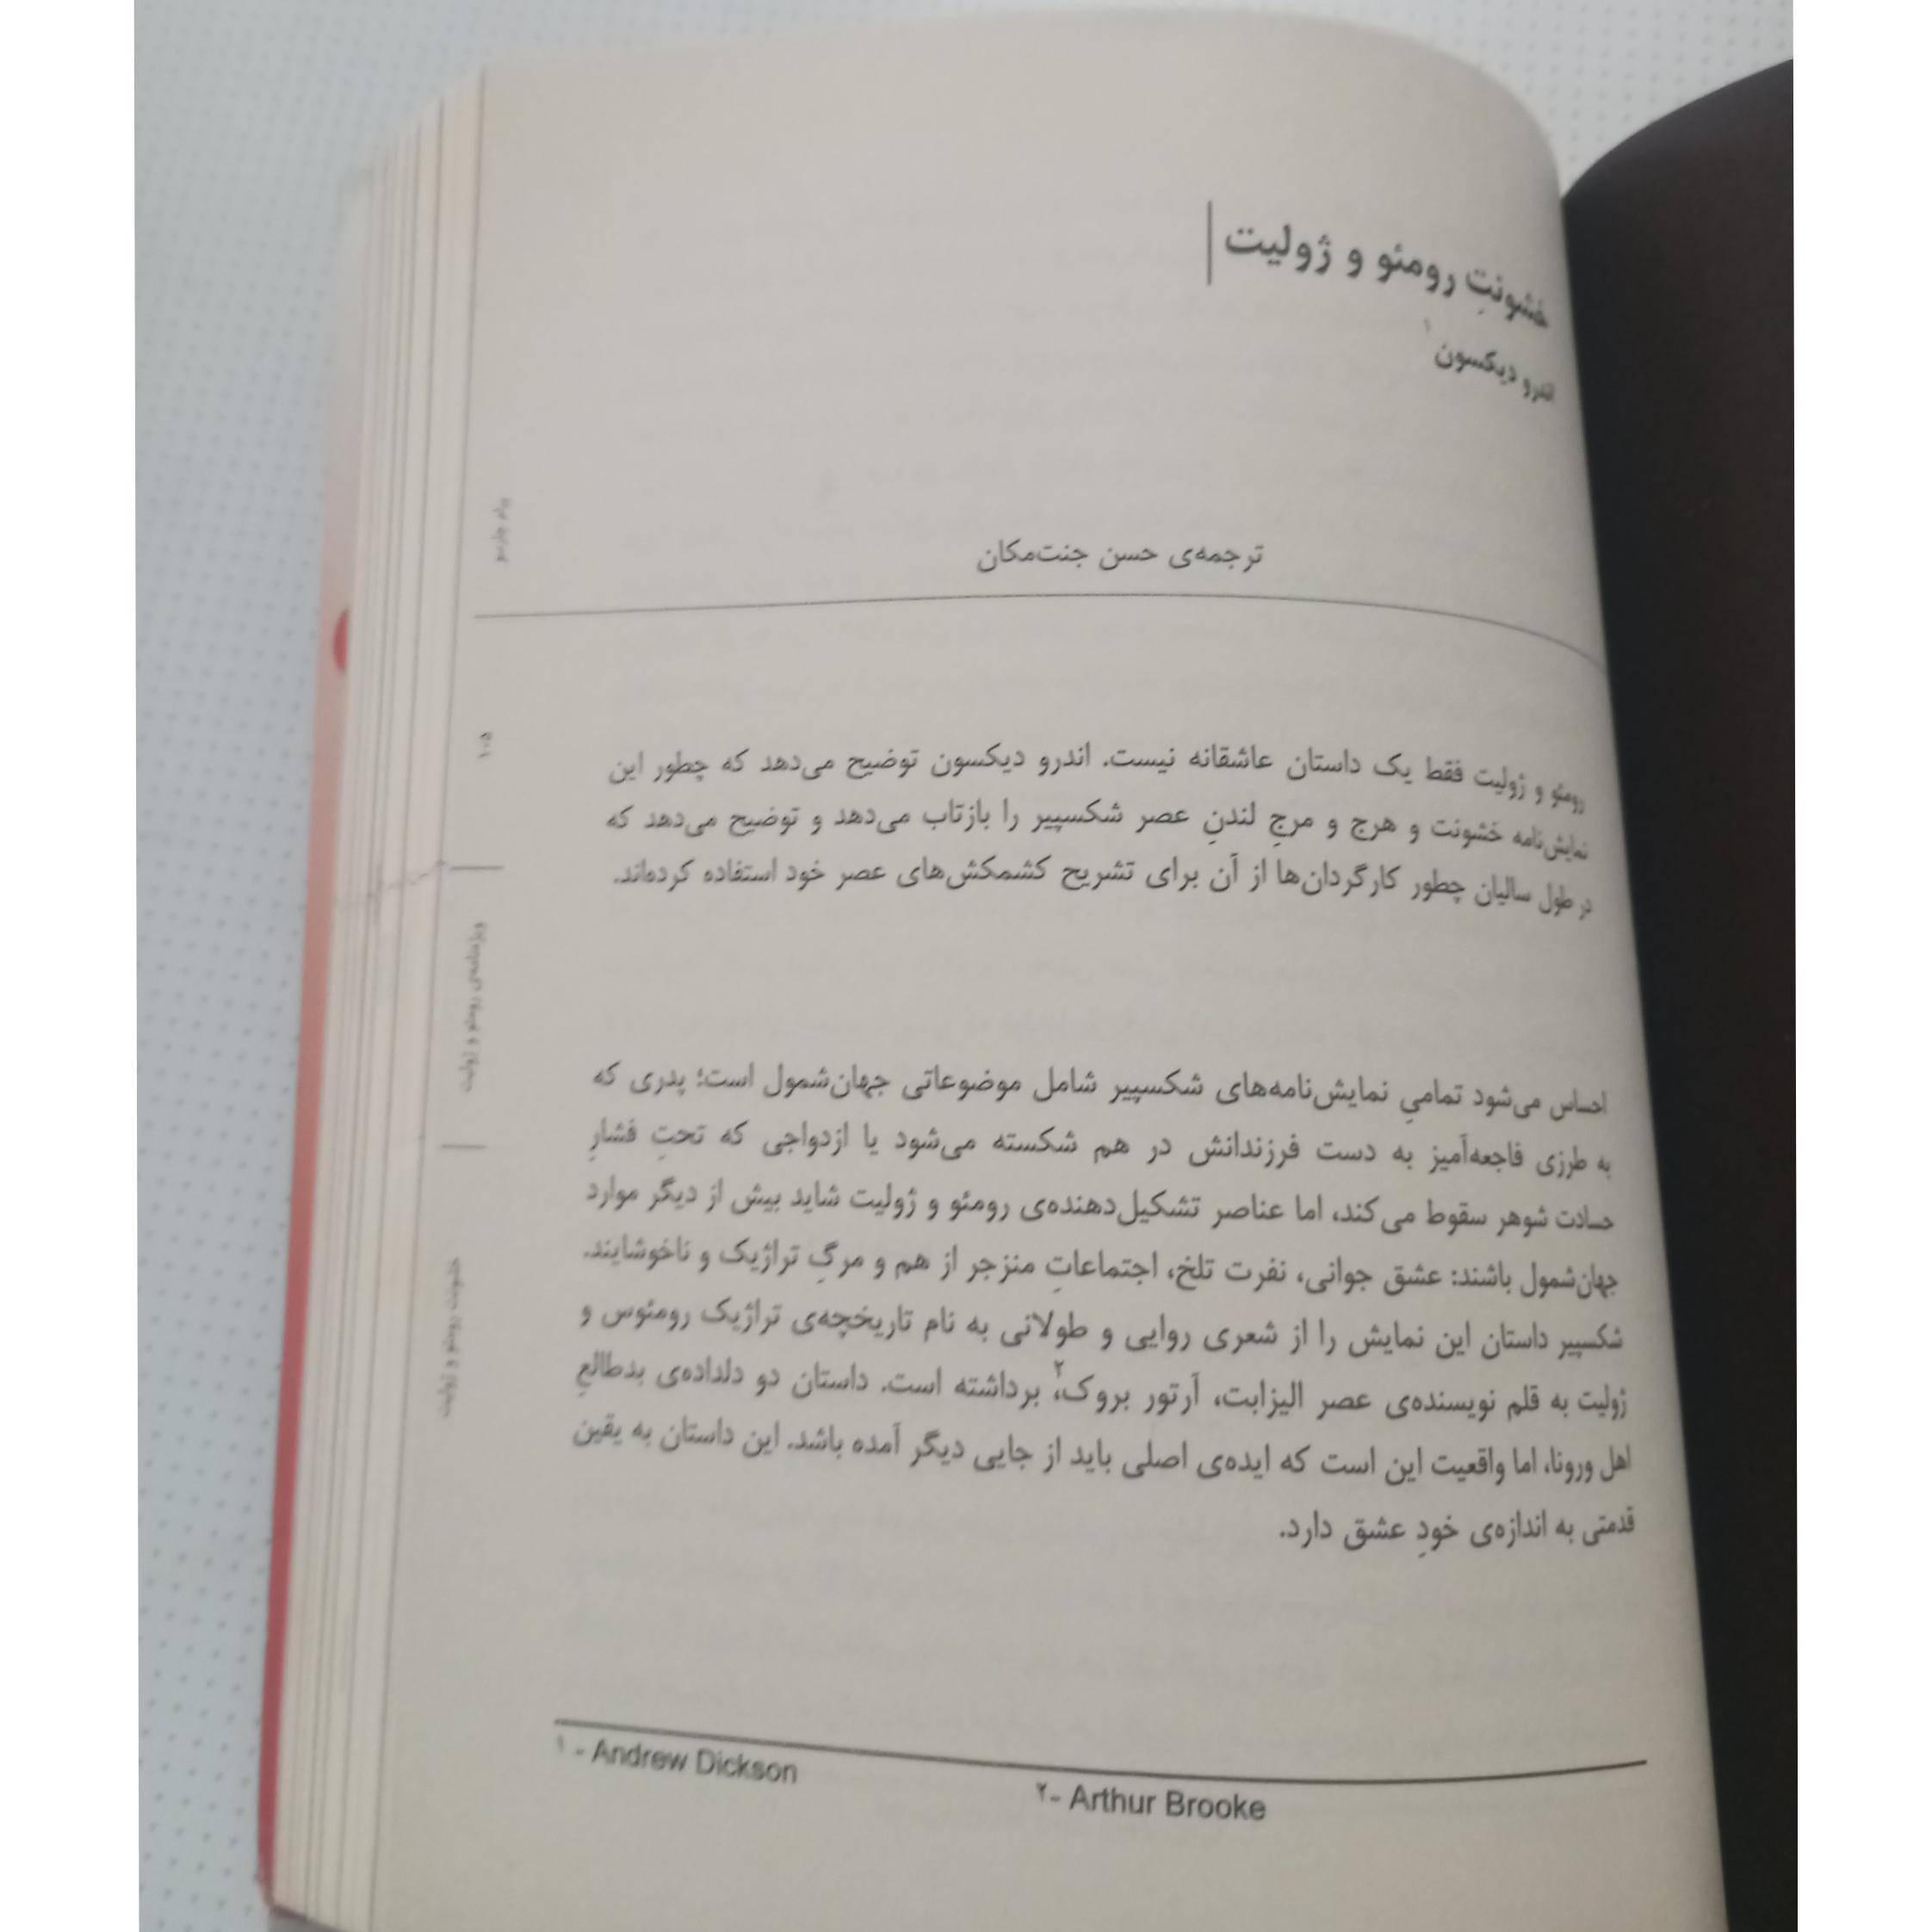 خشونتِ رومئو و ژولیت
اندرو دیکسون ۱
ترجمه‌ی حسن جنت‌مکان
رومئو و ژولیت فقط یک داستان عاشقانه نیست. اندرو دیکسون توضیح می‌دهد که چطور این
نمایش‌نامه خشونت و هرج و مرجِ لندنِ عصر شکسپیر را بازتاب می‌دهد و توضیح می‌دهد که
در طول سالیان چطور کارگردان‌ها از آن برای تشریح کشمکش‌های عصر خود استفاده کرده‌اند.
احساس می‌شود تمامیِ نمایش‌نامه‌های شکسپیر شامل موضوعاتی جهان‌شمول است؛ پدری که
به طرزی فاجعه‌آمیز به دست فرزندانش در هم شکسته می‌شود یا ازدواجی که تحتِ فشارِ
حسادت شوهر سقوط می‌کند، اما عناصر تشکیل‌دهنده‌ی رومئو و ژولیت شاید بیش از دیگر موارد
جهان‌شمول باشند: عشق جوانی، نفرت تلخ، اجتماعاتِ منزجر از هم و مرگِ تراژیک و ناخوشایند.
شکسپیر داستان این نمایش را از شعری روایی و طولانی به نام تاریخچه‌ی تراژیک رومئوس و
ژولیت به قلم نویسنده‌ی عصر الیزابت، آرتور بروک۲، برداشته است. داستان دو دلداده‌ی بدطالعِ
اهل ورونا، اما واقعیت این است که ایده‌ی اصلی باید از جایی دیگر آمده باشد. این داستان به یقین
قدمتی به اندازه‌ی خودِ عشق دارد.
۱ - Andrew Dickson
۲- Arthur Brooke
۱۰۵
ویژه‌نامه‌ی رومئو و ژولیت
خشونت رومئو و ژولیت